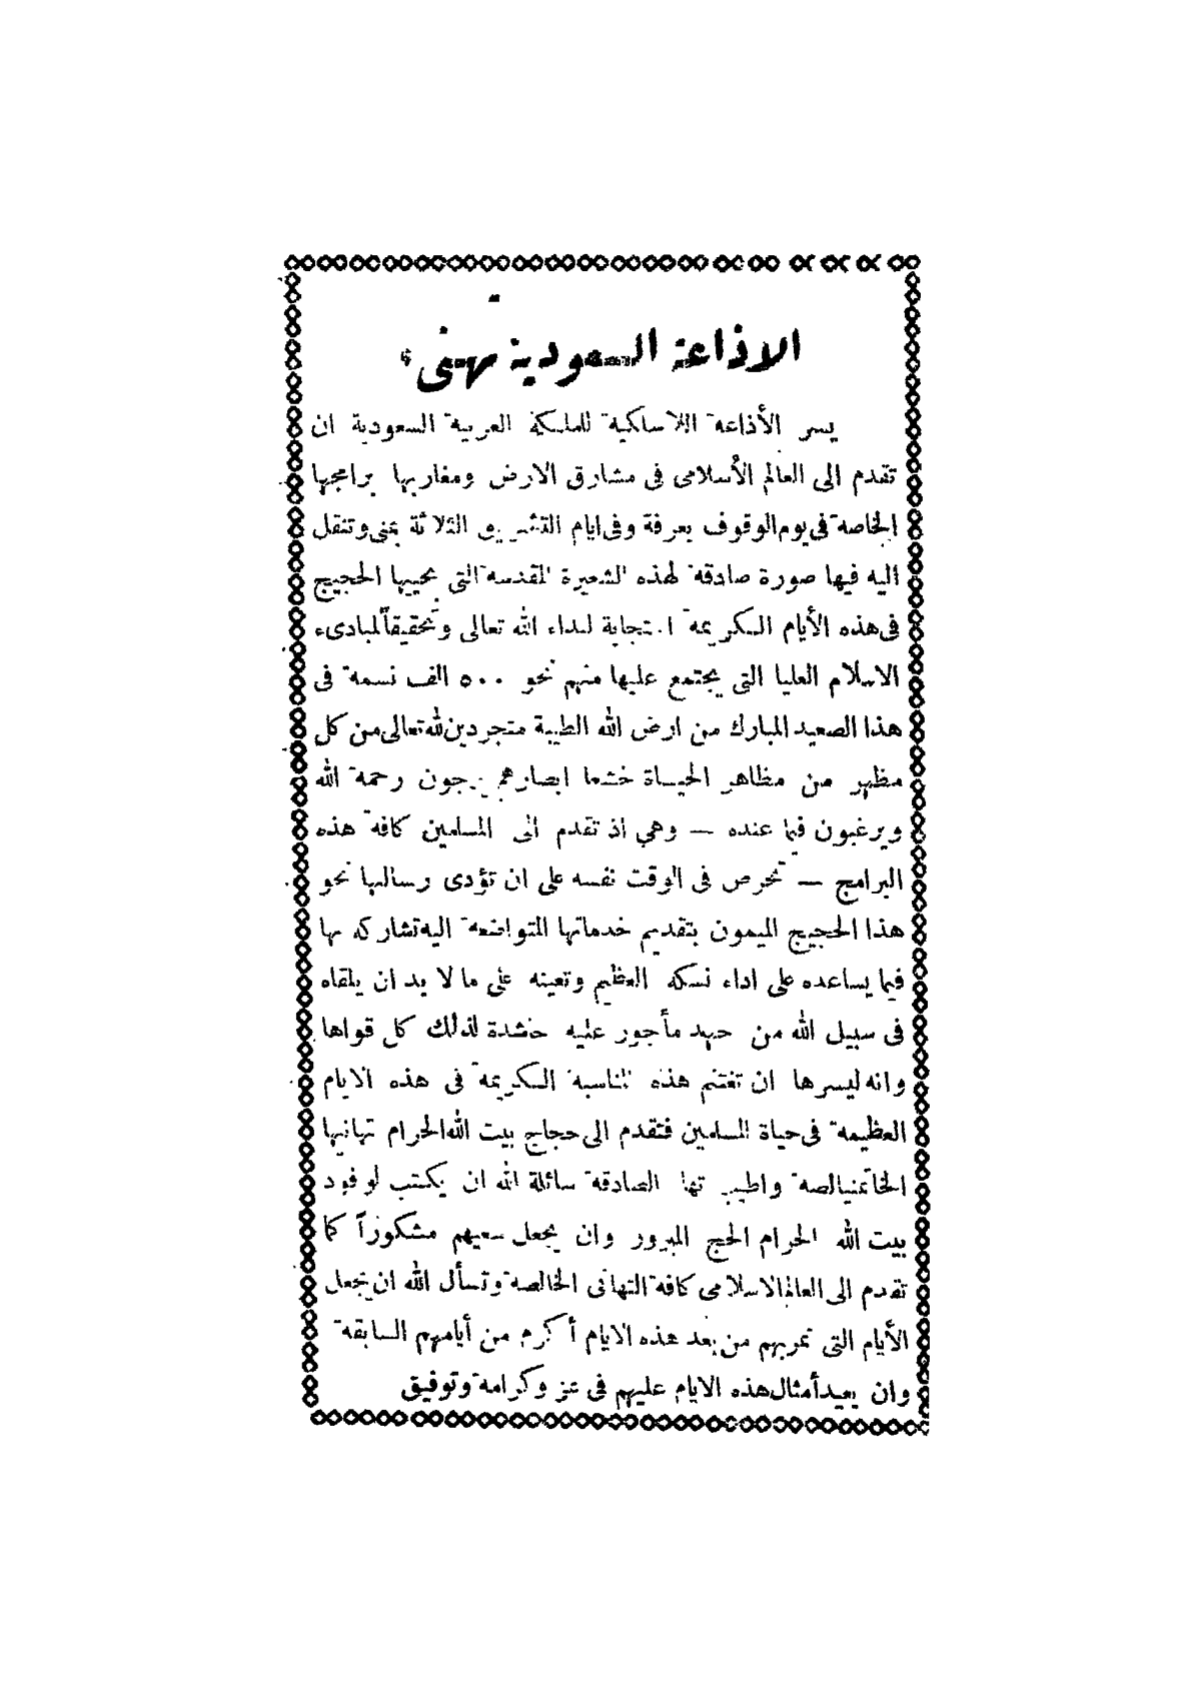 الاذاعة السعودية تهنىء
يسر الأذاعة اللاسلكية للمملكة العربية السعودية ان
تقدم الى العالم الأسلامى فى مشارق الارض ومغاربها برامجها
الخاصة فى يوم الوقوف بعرفة وفى ايام التشريق الثلاثة بمنى وتنقل
اليه فيها صورة صادقة لهذه الشعيرة المقدسة التى يحييها الحجيج
فى هذه الأيام الكريمة استجابة لنداء الله تعالى وتحقيقاً لمبادىء
الاسلام العليا التى يجتمع عليها منهم نحو ٥٠٠ الف نسمة فى
هذا الصعيد المبارك من ارض الله الطيبة متجردين لله تعالى من كل
مظهر من مظاهر الحياة خشعا ابصارهم يرجون رحمة الله
ويرغبون فيما عنده — وهي اذ تقدم الى المسلمين كافة هذه
البرامج — تحرص فى الوقت نفسه على ان تؤدى رسالتها نحو
هذا الحجيج الميمون بتقديم خدماتها المتواضعة اليه تشاركه بها
فيما يساعده على اداء نسكه العظيم وتعينه على ما لا بد ان يلقاه
فى سبيل الله من جهد مأجور عليه حشدة لذلك كل قواها
وانه ليسرها ان تغتنم هذه المناسبة الكريمة فى هذه الايام
العظيمة فى حياة المسلمين فتقدم الى حجاج بيت الله الحرام تهانيها
واطيب الصادقة سائلة الله ان يكتب لوفود
بيت الله الحرام الحج المبرور وان يجعل سعيهم مشكوراً كما
تقدم الى العالم الاسلامى كافة التهانى الخالصة وتسأل الله ان يجعل
الأيام التى تمر بهم من بعد هذه الايام أكرم من أيامهم السابقة
وان يعيد أمثال هذه الايام عليهم فى عز وكرامة وتوفيق